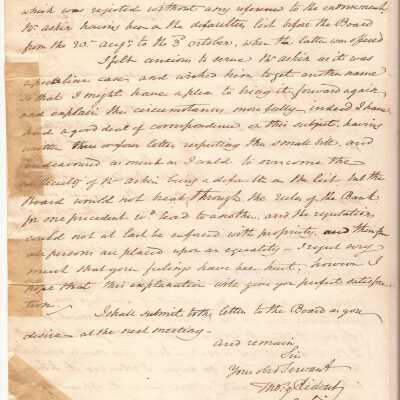 which was rejected without any reference to the endorsement
Mr Askin having been a the defaulters list before the Board
from the 20th Augt to the 3d October, when the latter was offered
I felt anxious to serve Mr Askin as it was
a peculiar case, and wished him to get another name
so that I might have a plea to bring it forward again
and explain the circumstances more fully indeed I have
had a good deal of correspondence on this subject, having
written three or four letters respecting this small bill, and
endeavoured as much as I could to overcome the
difficulty of Mr Askin being a defaulter on the list but the
Board would not break through the rules of the Bank
for one precedent wd lead to another, and the regulations
could not at last be enforced with propriety, and therefore
all persons are placed upon an equality – I regret very
much that your feelings have been hurt; however I
hope that this explanation will give you perfect satisfac-
tion.
I shall submit both letters to the Board as you
desire at the next meeting.
and remain
Sir
Your obd Servant
Thos